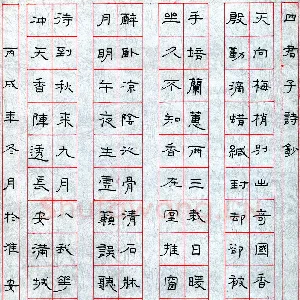 四君子詩鈔
天向梅梢別出奇國香
殷勤滴蜡緘封却卻被
手培蘭蕙兩三栽日暖
坐久不知香在室推窗
醉臥涼陰沁骨清石牀
月明午夜生靈籟誤聽
待到秋來九月八我花
冲天香陣透長安滿城
丙戌年冬月於淮安